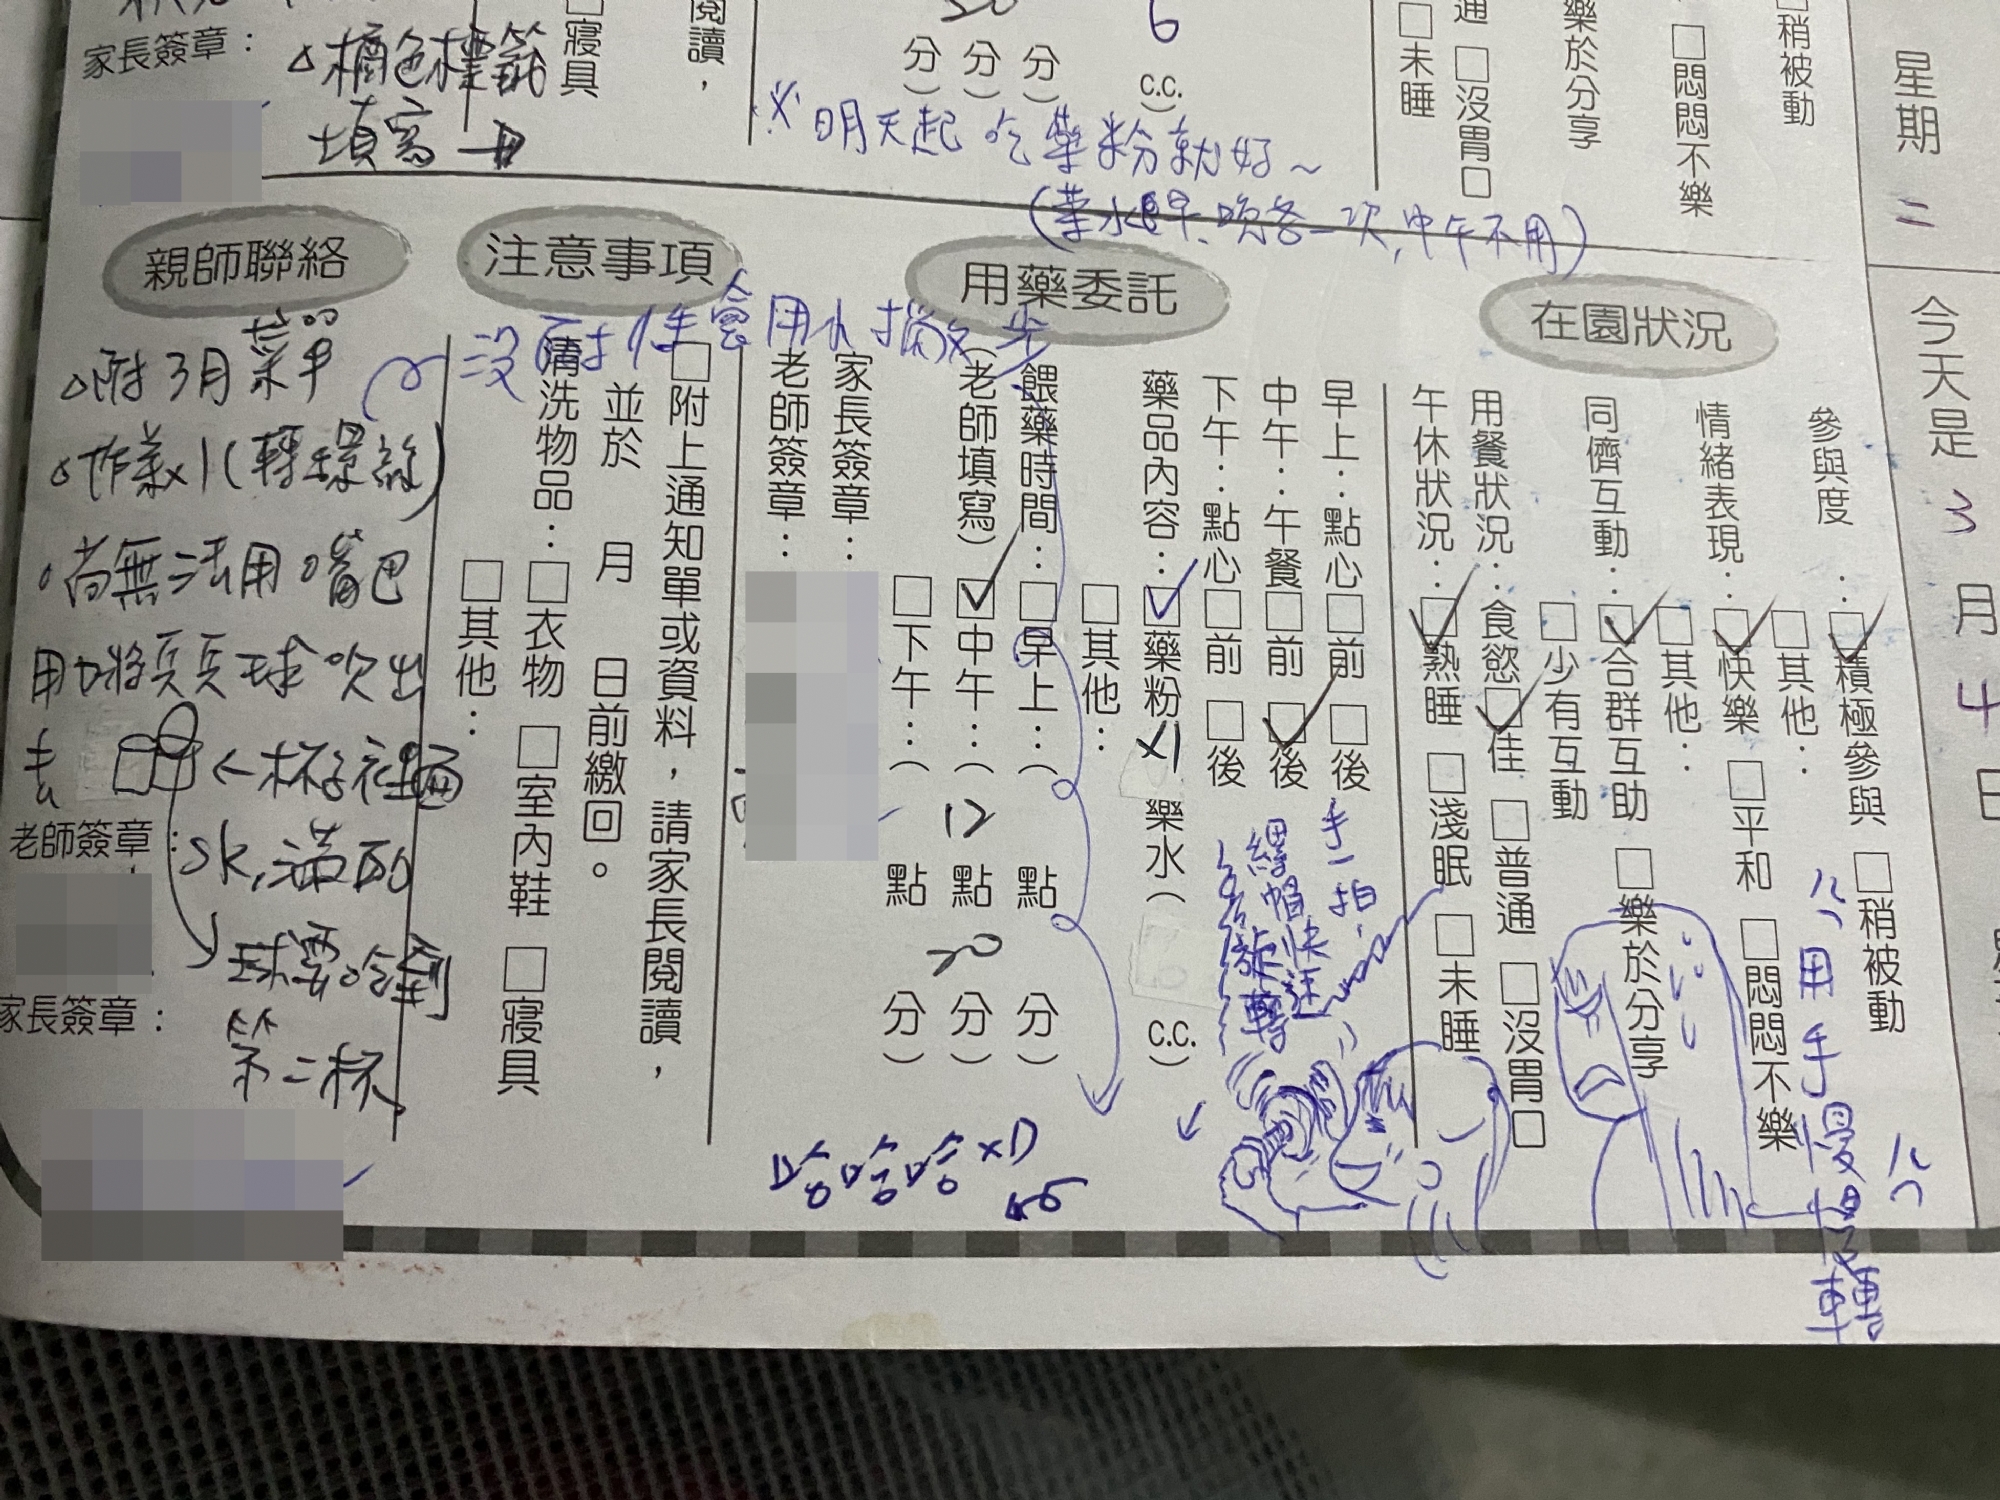 今天是3月4日
星期二
□稍被動
□悶悶不樂
樂於分享
通 □沒胃口
□未睡
6
(分)(分)(分)
c.c.)
※明天起吃藥粉就好~
(藥水早、晚各一次,中午不用)
閱讀,
□寢具
△橘色標籤
填寫
家長簽章:
在園狀況
參與度:☑積極參與 □稍被動
□其他:
情緒表現:☑快樂 □平和 □悶悶不樂
□其他:
同儕互動:☑合群互助 □樂於分享
□少有互動
用餐狀況:食慾☑佳 □普通 □沒胃口
午休狀況:☑熟睡 □淺眠 □未睡
用藥委託
早上:點心□前 □後
中午:午餐□前 ☑後
下午:點心□前 □後
藥品內容:☑藥粉x1 藥水( c.c.)
□其他:
餵藥時間:□早上:( 點 分)
(老師填寫)☑中午:(12點20分)
□下午:( 點 分)
家長簽章:
老師簽章:
注意事項
□附上通知單或資料,請家長閱讀,
並於 月 日前繳回。
清洗物品:□衣物 □室內鞋 □寢具
□其他:
親師聯絡
△附3月菜單
△作業x1(轉螺絲)
尚無法用嘴巴
用力將乒乓球吹出
去 ←杯子裡面
水滿
球要吹到
第二杯
老師簽章:
家長簽章:
手一拍,
螺帽快速
旋轉
用手慢慢轉
哈哈哈XD